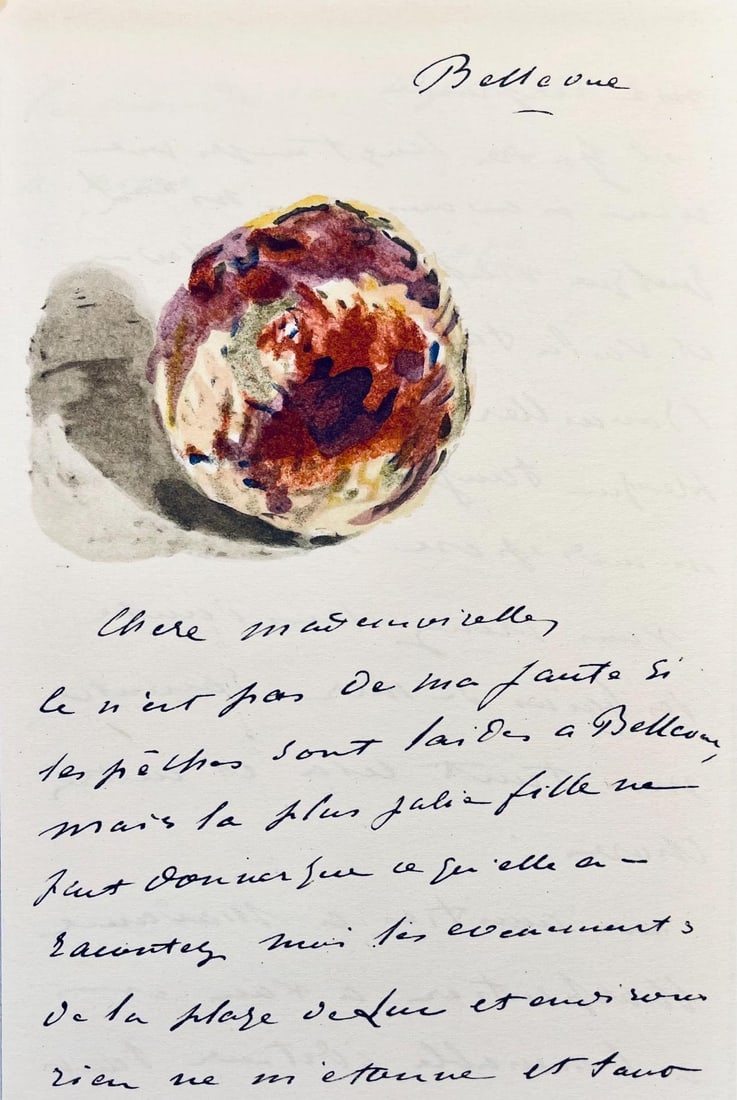 Bellevue
Chere mademoiselle,
ce n'est pas de ma faute si
les pêches sont laides a Bellevue,
mais la plus jolie fille ne
peut donner que ce qu'elle a —
racontez moi les evenements
de la plage de Luc et environs
rien ne m'etonne et tout